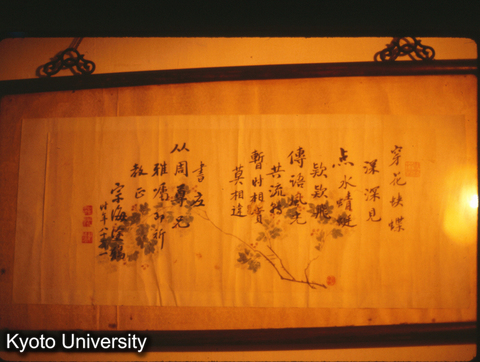 穿花蛺蝶
深深見
点水蜻蜓
款款飛
傳語風光
共流轉
暫時相賞
莫相違
書应
从周尊兄
雅屬即祈
教正
時年八十一
Kyoto University